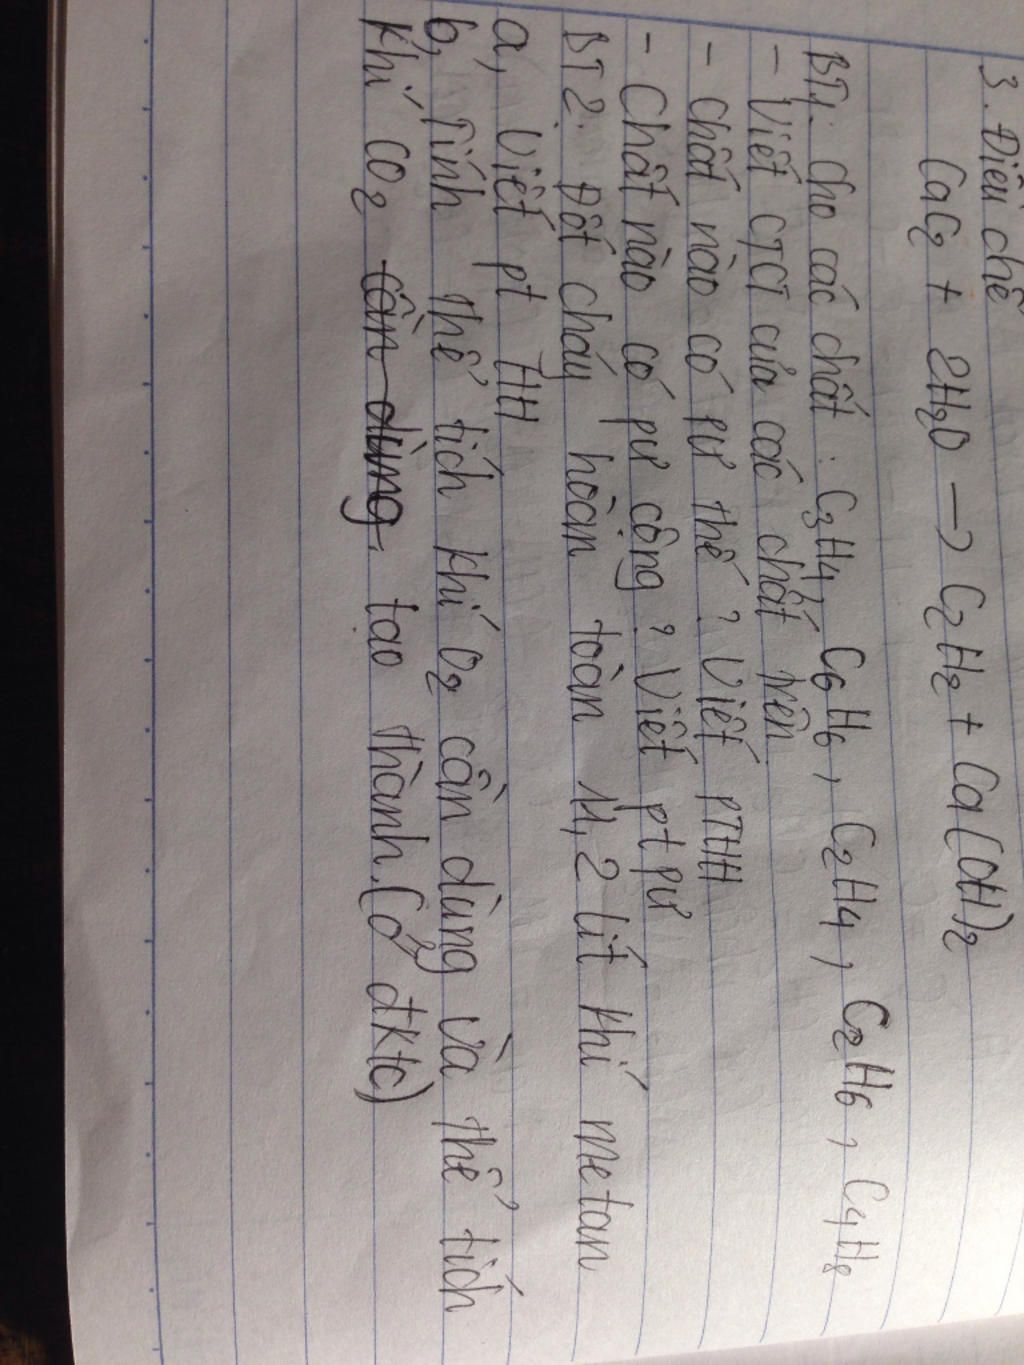 3. Điều chế
CaC₂ + 2H₂O → C₂H₂ + Ca(OH)₂
BT1: cho các chất: C₃H₄, C₆H₆, C₂H₄, C₂H₆, C₄H₈
- Viết CTCT của các chất trên
- chất nào có pư thế? Viết PTHH
- Chất nào có pư cộng? Viết pt pư
BT2. Đốt cháy hoàn toàn 11,2 lít khí metan
a, Viết pt HH
b, Tính thể tích khí O₂ cần dùng và thể tích
khí CO₂ cần dùng. tạo thành. (ở đktc)